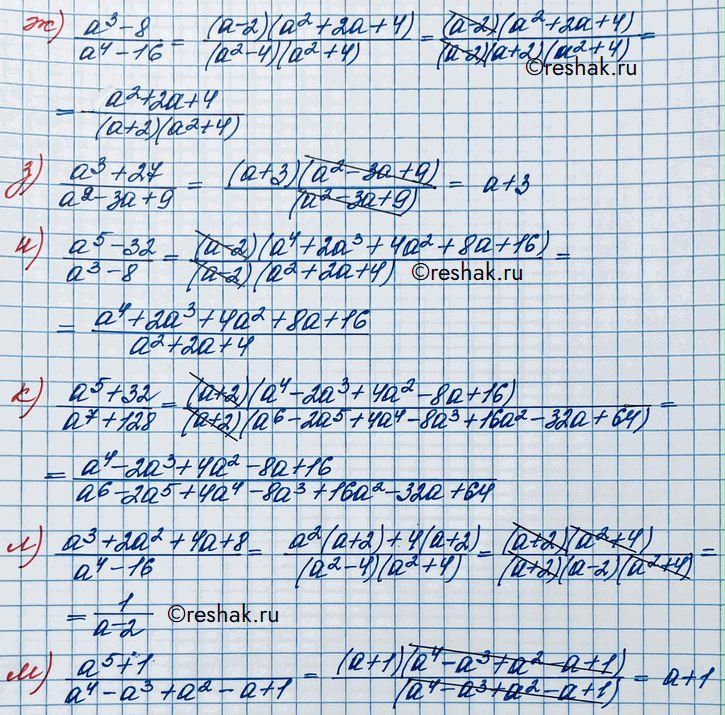 ж) (a³-8)/(a⁴-16) = ((a-2)(a²+2a+4))/((a²-4)(a²+4)) = ((a-2)(a²+2a+4))/((a-2)(a+2)(a²+4)) =
©reshak.ru
= (a²+2a+4)/((a+2)(a²+4))
з) (a³+27)/(a²-3a+9) = ((a+3)(a²-3a+9))/((a²-3a+9)) = a+3
и) (a⁵-32)/(a³-8) = ((a-2)(a⁴+2a³+4a²+8a+16))/((a-2)(a²+2a+4)) =
©reshak.ru
= (a⁴+2a³+4a²+8a+16)/(a²+2a+4)
к) (a⁵+32)/(a⁷+128) = ((a+2)(a⁴-2a³+4a²-8a+16))/((a+2)(a⁶-2a⁵+4a⁴-8a³+16a²-32a+64)) =
= (a⁴-2a³+4a²-8a+16)/(a⁶-2a⁵+4a⁴-8a³+16a²-32a+64)
л) (a³+2a²+4a+8)/(a⁴-16) = (a²(a+2)+4(a+2))/((a²-4)(a²+4)) = ((a+2)(a²+4))/((a+2)(a-2)(a²+4)) =
= 1/(a-2) ©reshak.ru
м) (a⁵+1)/(a⁴-a³+a²-a+1) = ((a+1)(a⁴-a³+a²-a+1))/((a⁴-a³+a²-a+1)) = a+1